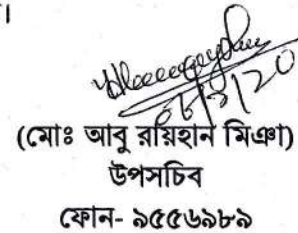 (মোঃ আবু রায়িহান মিঞা)
উপসচিব
ফোন- ৯৫৫৬৯৮৯